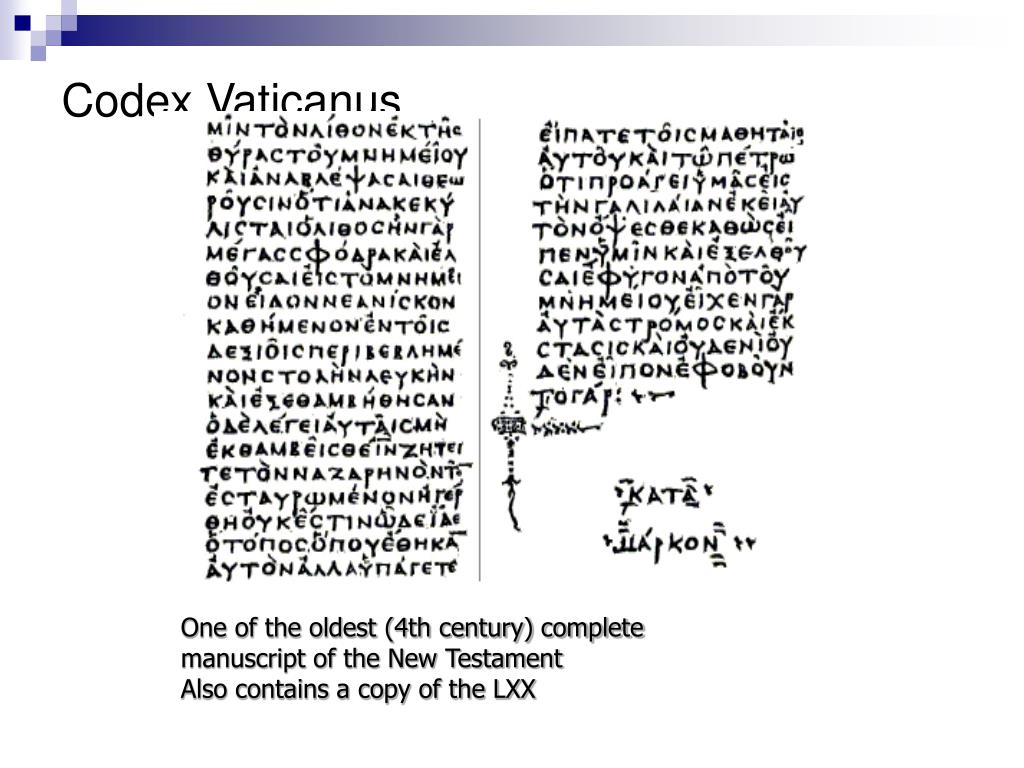 Codex Vaticanus
ΜΙΝΤΟΝΛΙΘΟΝΕΚΤΗϹ
ΘΥΡΑϹΤΟΥΜΝΗΜΕΙΟΥ
ΚΑΙΑΝΑΒΛΕΨΑϹΑΙΘΕω
ΡΟΥϹΙΝΟΤΙΑΝΑΚΕΚΥ
ΛΙϹΤΑΙΟΛΙΘΟϹΗΝΓΑΡ
ΜΕΓΑϹϹΦΟΔΡΑΚΑΙΕΛ
ΘΟΥϹΑΙΕΙϹΤΟΜΝΗΜΕΙ
ΟΝΕΙΔΟΝΝΕΑΝΙϹΚΟΝ
ΚΑΘΗΜΕΝΟΝΕΝΤΟΙϹ
ΔΕΞΙΟΙϹΠΕΡΙΒΕΒΛΗΜΕ
ΝΟΝϹΤΟΛΗΝΛΕΥΚΗΝ
ΚΑΙΕΞΕΘΑΜΒΗΘΗϹΑΝ
ΟΔΕΛΕΓΕΙΑΥΤΑΙϹΜΗ
ΕΚΘΑΜΒΕΙϹΘΕΙΝΖΗΤΕΙ
ΤΕΤΟΝΝΑΖΑΡΗΝΟΝΤΟ̅
ΕϹΤΑΥΡωΜΕΝΟΝΗΓΕΡ
ΘΗΟΥΚΕϹΤΙΝωΔΕΙΔΕ
ΟΤΟΠΟϹΟΠΟΥΕΘΗΚΑ̅
ΑΥΤΟΝΑΛΛΑΥΠΑΓΕΤΕ
ΕΙΠΑΤΕΤΟΙϹΜΑΘΗΤΑΙϹ
ΑΥΤΟΥΚΑΙΤωΠΕΤΡω
ΟΤΙΠΡΟΑΓΕΙΥΜΑϹΕΙϹ
ΤΗΝΓΑΛΙΛΑΙΑΝΕΚΕΙΑΥ
ΤΟΝΟΨΕϹΘΕΚΑΘωϹΕΙ
ΠΕΝΥΜΙΝΚΑΙΕΞΕΛΘΟΥ
ϹΑΙΕΦΥΓΟΝΑΠΟΤΟΥ
ΜΝΗΜΕΙΟΥΕΙΧΕΝΓΑΡ
ΑΥΤΑϹΤΡΟΜΟϹΚΑΙΕΚ
ϹΤΑϹΙϹΚΑΙΟΥΔΕΝΙΟΥ
ΔΕΝΕΙΠΟΝΕΦΟΒΟΥΝ
ΤΟΓΑΡ:
ΚΑΤΑ
ΜΑΡΚΟΝ
One of the oldest (4th century) complete
manuscript of the New Testament
Also contains a copy of the LXX